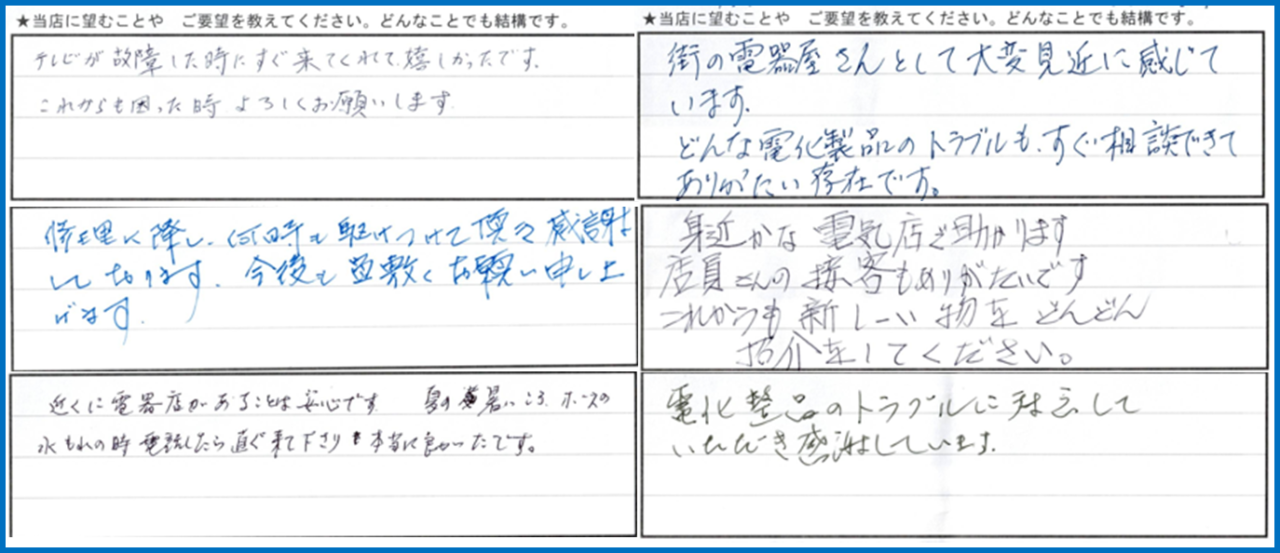 ★当店に望むことや　ご要望を教えてください。どんなことでも結構です。
テレビが故障した時にすぐ来てくれて、嬉しかったです。
これからも困った時よろしくお願いします
修理に際し、何時も駆けつけて頂き感謝
しております。今後も宜敷くお願い申し上
げます。
近くに電器店があることは安心です　夏の暑いころ、ホースの
水もれの時電話したら直ぐ来て下さり本当に良かったです。
★当店に望むことや　ご要望を教えてください。どんなことでも結構です。
街の電器屋さんとして大変見近に感じて
います。
どんな電化製品のトラブルも、すぐ相談できて
ありがたい存在です。
身近かな電気店で助かります
店員さんの接客もありがたいです
これからも新しーい物をどんどん
紹介をしてください。
電化製品のトラブルに対応して
いただき感謝しています。